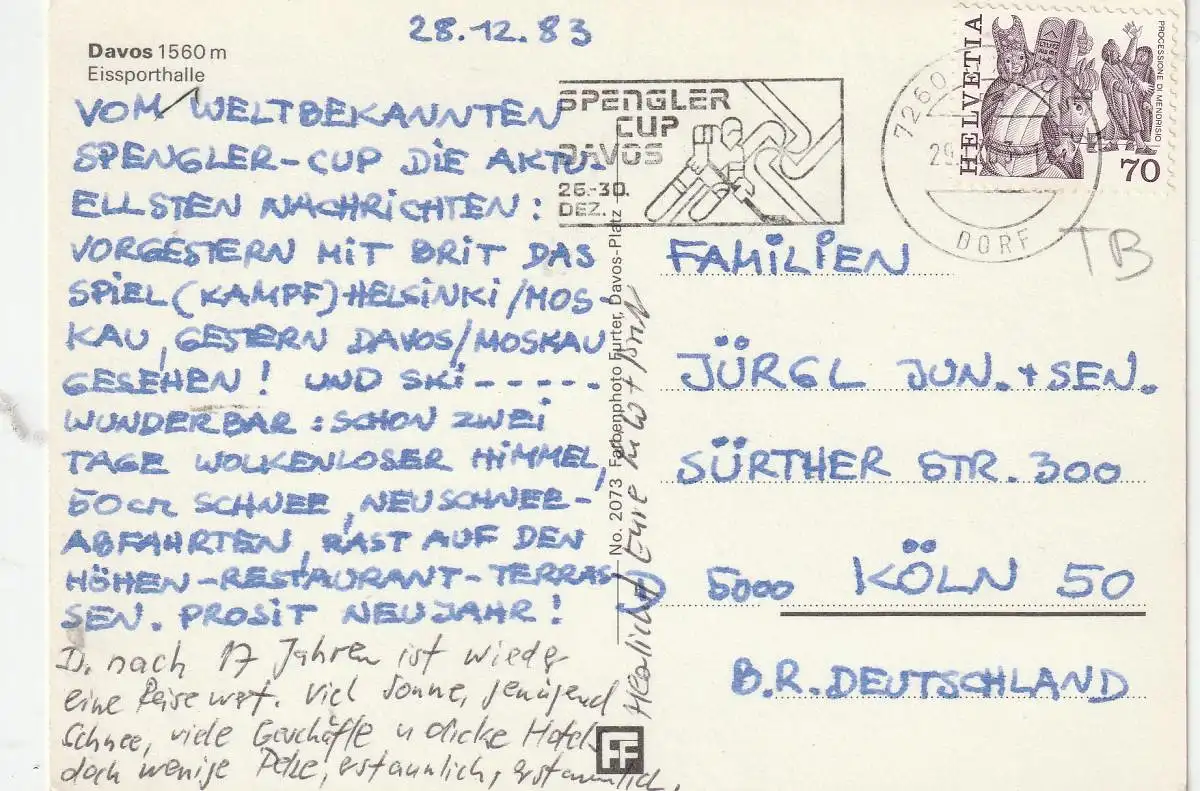 28.12.83
Davos 1560 m
Eissporthalle
VOM WELTBEKANNTEN
SPENGLER-CUP DIE AKTU-
ELLSTEN NACHRICHTEN:
VORGESTERN MIT BRIT DAS
SPIEL (KAMPF) HELSINKI/MOS-
KAU, GESTERN DAVOS/MOSKAU
GESEHEN! UND SKI-----
WUNDERBAR: SCHON ZWEI
TAGE WOLKENLOSER HIMMEL,
50cm SCHNEE, NEUSCHNEE-
ABFAHRTEN, RAST AUF DEN
HÖHEN-RESTAURANT-TERRAS-
SEN. PROSIT NEUJAHR!
D. nach 17 Jahren ist wieder
eine Reise wert. Viel Sonne, genügend
Schnee, viele Geschäfte u dicke Hotels
doch wenige Pelze, erstaunlich, erstaunlich.
Herzlichst Eure W + Brit
No. 2073 Farbenphoto Furter, Davos-Platz
FF
SPENGLER
CUP
DAVOS
26.-30.
DEZ.
7260
29.
DORF
HELVETIA
PROCESSIONE DI MENDRISIO
70
TB
FAMILIEN
JÜRGL JUN. + SEN.
SÜRTHER STR. 300
5000 KÖLN 50
B.R. DEUTSCHLAND